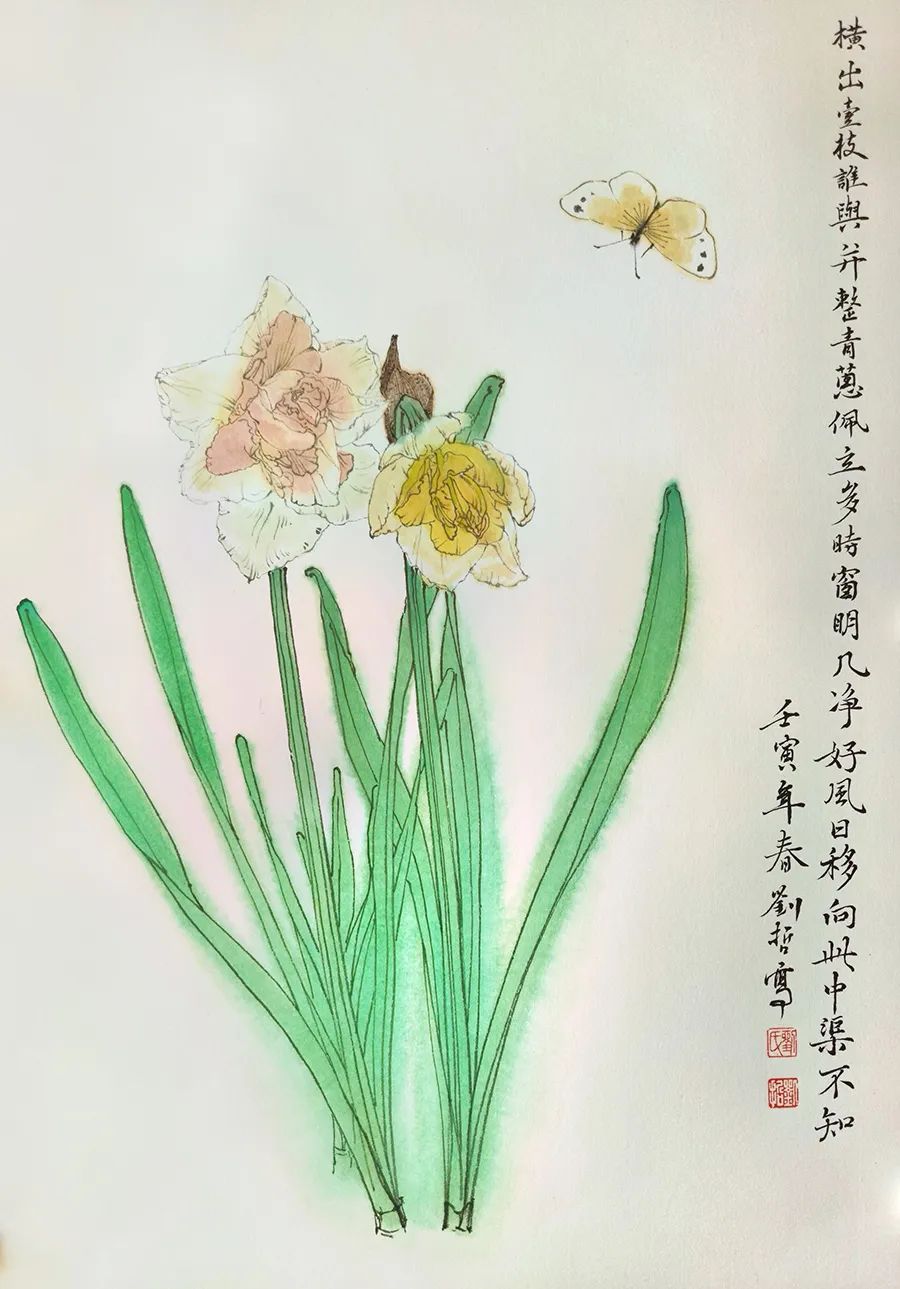 橫出壹枝誰與并整青蔥佩立多時窗明几净好風日移向此中渠不知
壬寅年春劉哲寫
劉氏
劉哲